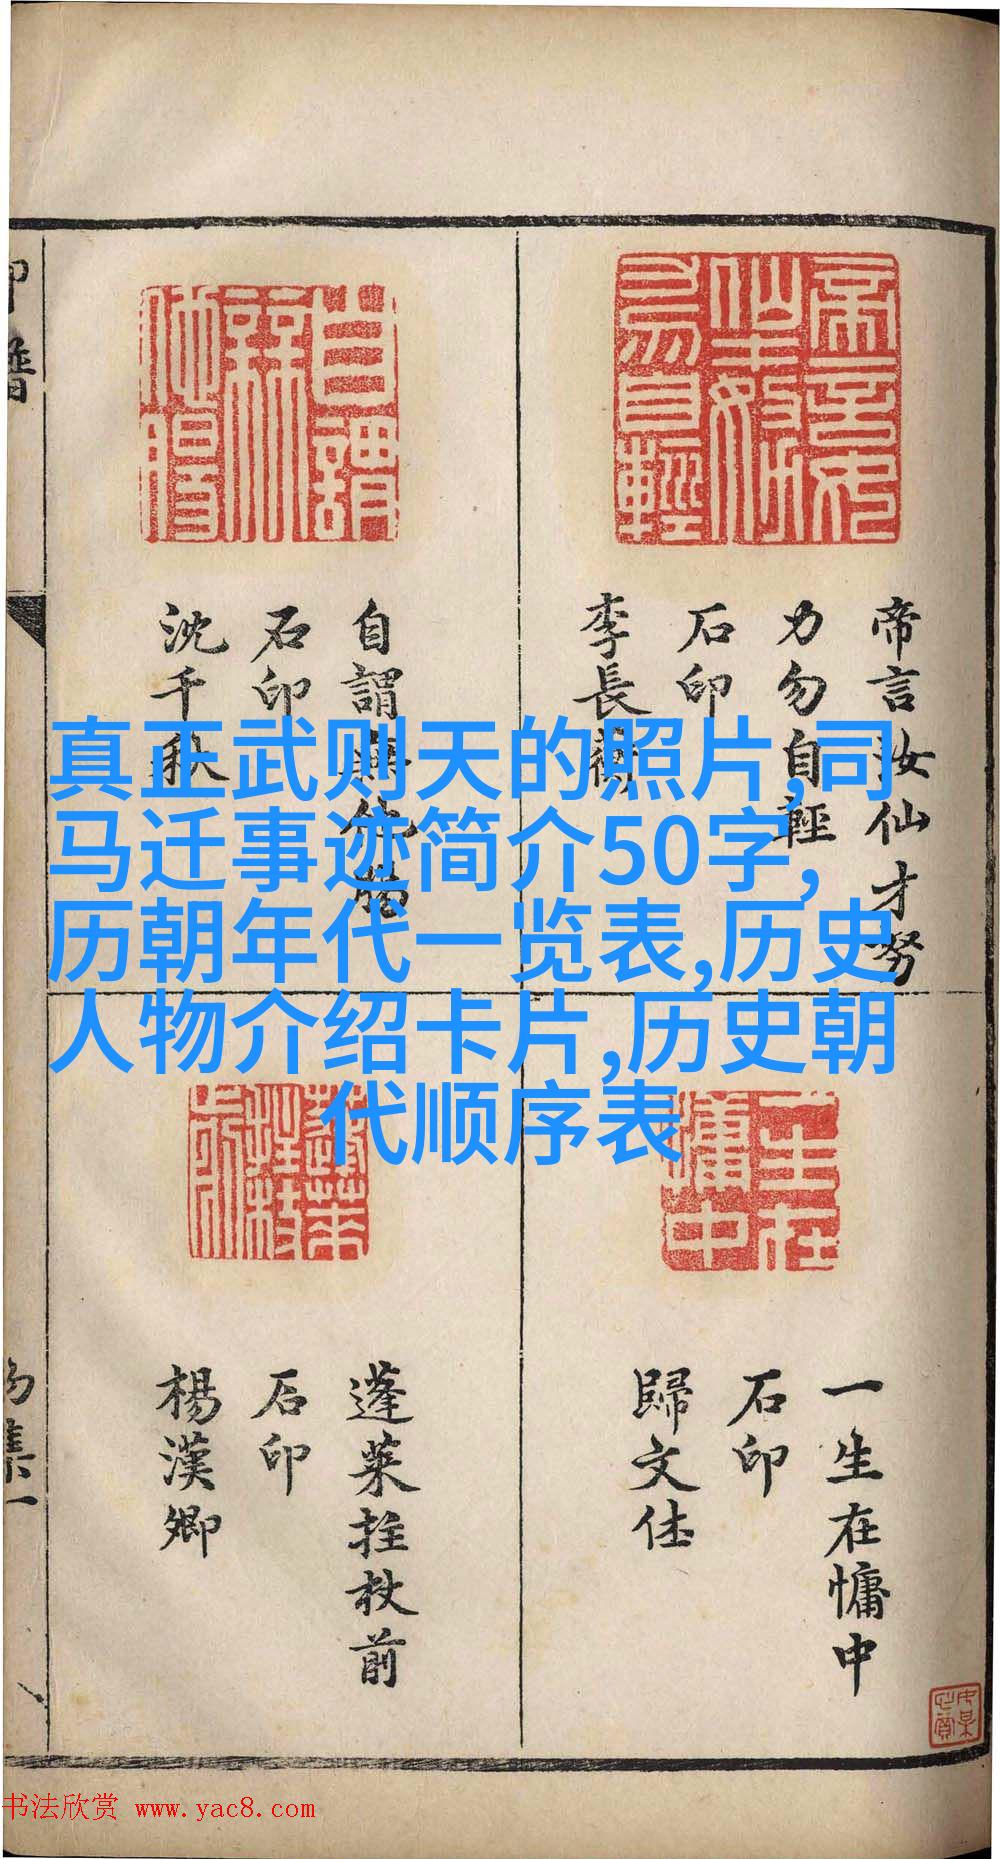 帝言汝仙才努
力勿自輕
石印
李長蘅
自謂無他腸
石印
沈千秋
真正武则天的照片,司
马迁事迹简介50字,
历朝年代一览表,历史
人物介绍卡片,历史朝
代顺序表
一生在慵中
石印
歸文休
蓬萊拄杖前
石印
楊漢卿
书法欣赏 www.yac8.com